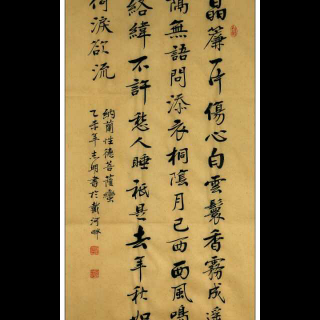 晶簾一片傷心白雲鬟香霧成遥
隔無語問添衣桐陰月已西西風鳴
絡緯不許愁人睡祇是去年秋如
何淚欲流
納蘭性德菩薩蠻
乙未年志明書於戴河畔